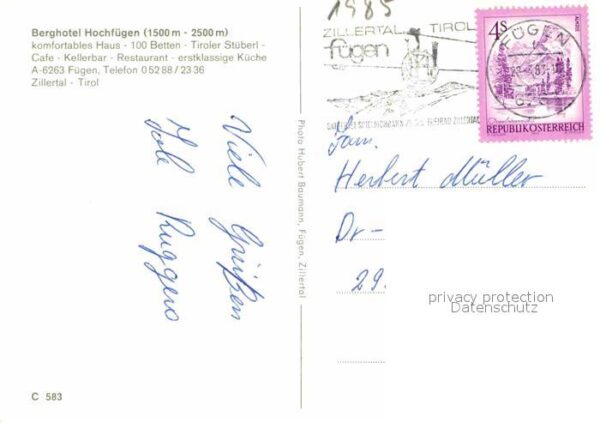 Berghotel Hochfügen (1500 m - 2500 m)
komfortables Haus - 100 Betten - Tiroler Stüberl -
Cafe - Kellerbar - Restaurant - erstklassige Küche
A-6263 Fügen, Telefon 0 52 88 / 23 36
Zillertal - Tirol
Viele Grüßen
Ruggero
C 583
Photo Hubert Baumann, Fügen, Zillertal
1985
ZILLERTAL TIROL
fügen
FÜGEN
4 S
REPUBLIK ÖSTERREICH
Fam.
Herbert Müller
Dr-
29.
privacy protection
Datenschutz